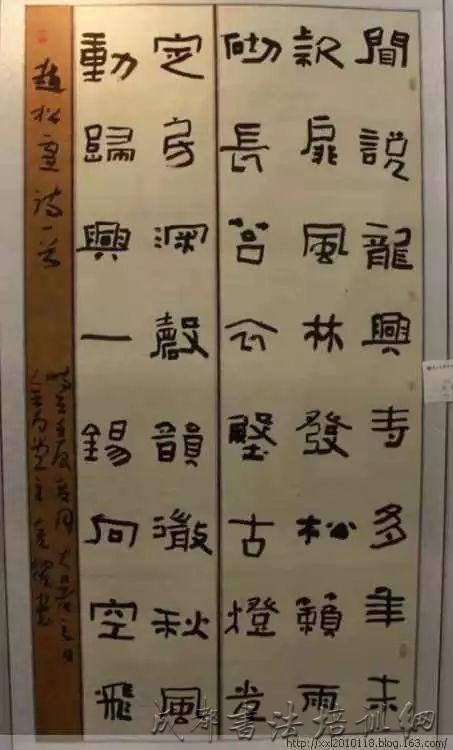 聞說龍興寺多年未
款扉風林發松籟雨
砌長苔衣殿古燈光
定房深磬韻微秋風
動歸興一錫向空飛
趙松雪詩一首
成都書法培训網
http://xxl2010118.blog.163.com/